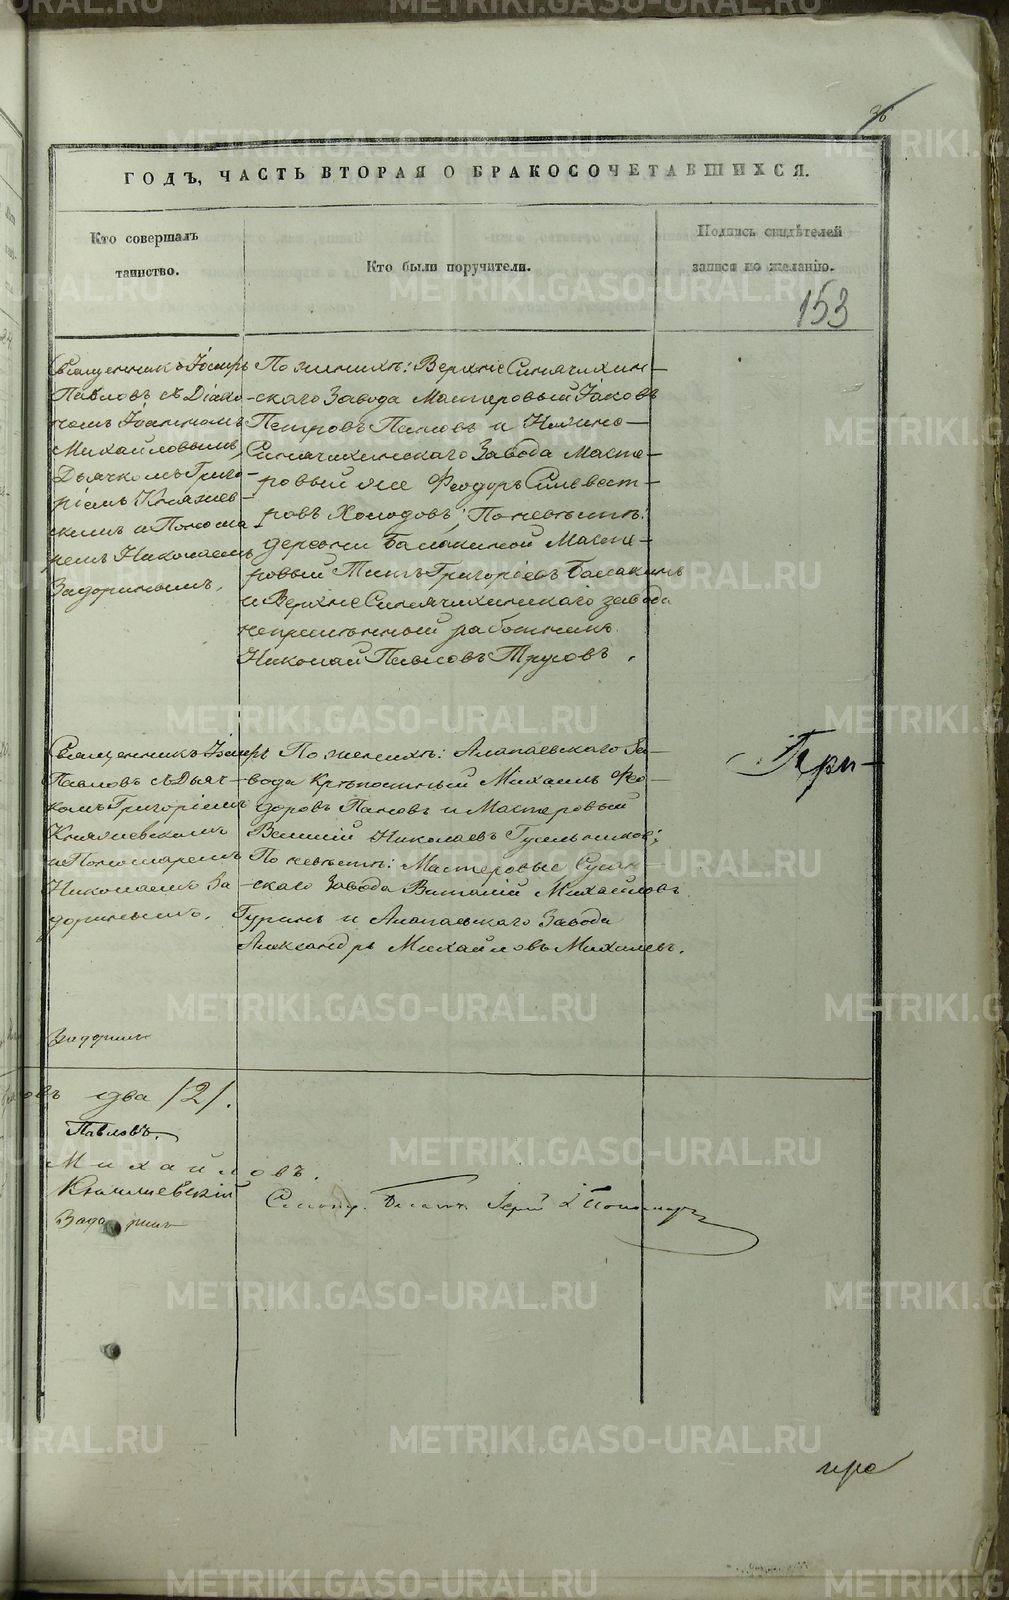 36
ГОДЪ, ЧАСТЬ ВТОРАЯ О БРАКОСОЧЕТАВШИХСЯ.
Кто совершалъ
таинство.
Кто были поручители.
Подпись свидѣтелей
записи по желанію.
153
Священникъ Іосифъ
Павловъ съ Діако-
номъ Іоанномъ
Михайловымъ,
Дьячкомъ Григо-
ріемъ Княжев-
скимъ и Понома-
ремъ Николаемъ
Задоринымъ.
По женихѣ: Верхне Синячихин-
скаго Завода Мастеровый Іаковъ
Петровъ Пановъ и Нижно-
Синячихинскаго Завода Масте-
ровый же Феодоръ Сильвест-
ровъ Холодовъ; По невѣстѣ:
деревни Балакиной Масте-
ровый Титъ Григоріевъ Балакинъ
и Верхне Синячихинскаго завода
непремѣнный работникъ
Николай Павловъ Трусовъ.
Священникъ Іосифъ
Павловъ съ Дьяч-
комъ Григоріемъ
Княжевскимъ
и Пономаремъ
Николаемъ За
доринымъ.
По женихѣ: Алапаевскаго За-
вода Крѣпостный Михаилъ Фео-
доровъ Пановъ и Мастеровый
Николаевъ Гусельниковъ;
По невѣстѣ: Мастеровые Сусан-
скаго Завода Виталій Михайловъ
Гуринъ и Алапаевскаго Завода
Александръ Михайловъ Михалевъ.
При-
Задоринъ
овъ два /2/.
Павловъ.
Михайловъ.
Княжевскій
Задоринъ
METRIKI.GASO-URAL.RU